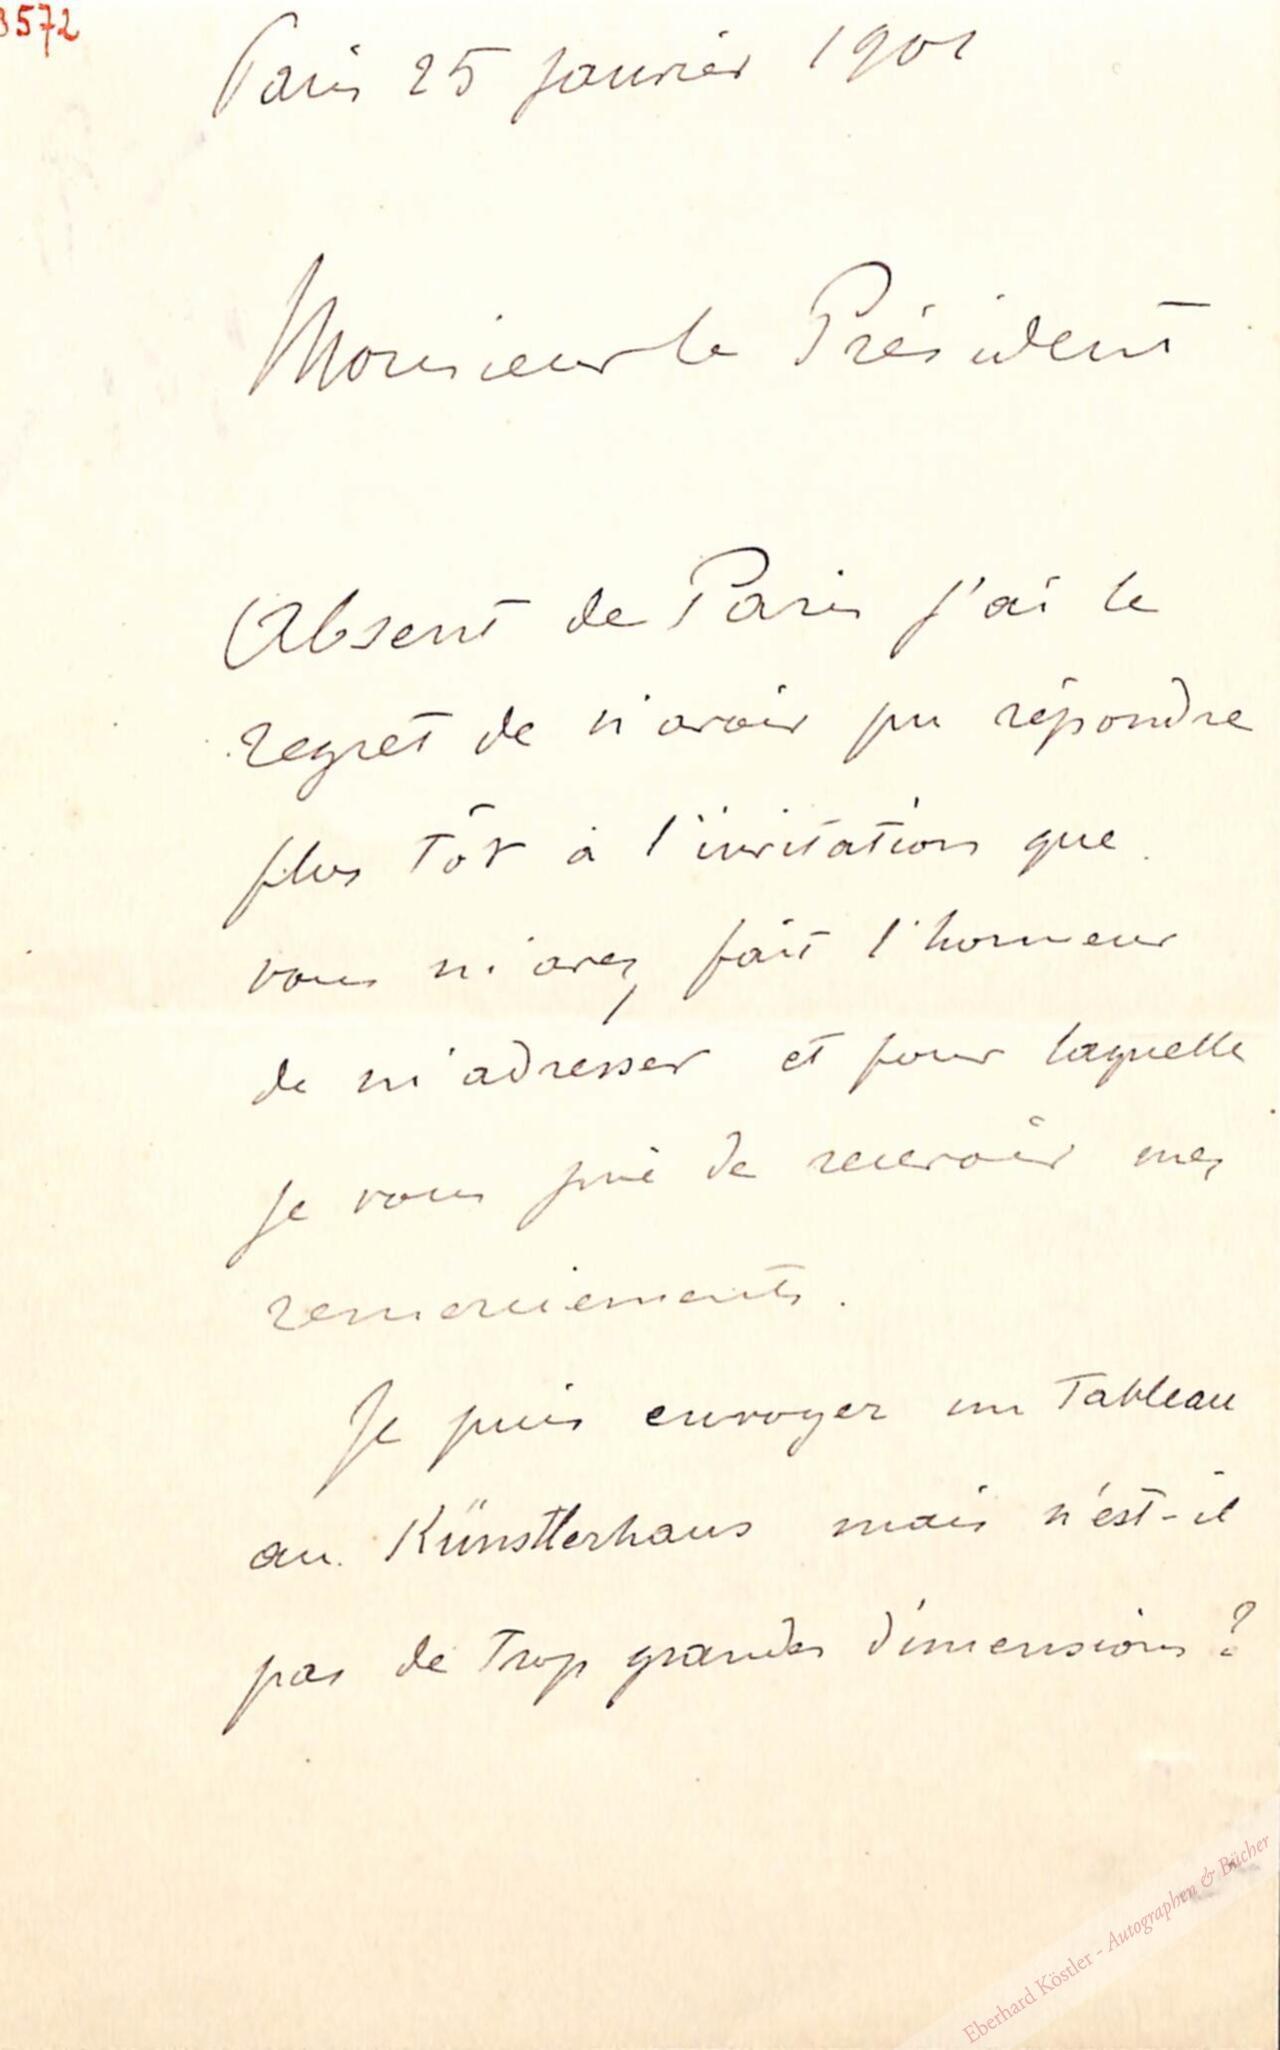 3572
Paris 25 janvier 1901
Monsieur le Président
Absent de Paris j'ai le
regret de n'avoir pu répondre
plus tôt à l'invitation que
vous m'avez fait l'honneur
de m'adresser et pour laquelle
je vous prie de recevoir mes
remerciements.
Je puis envoyer un Tableau
au Künstlerhaus mais n'est-il
pas de Trop grandes dimensions ?
Eberhard Köstler - Autographen & Bücher